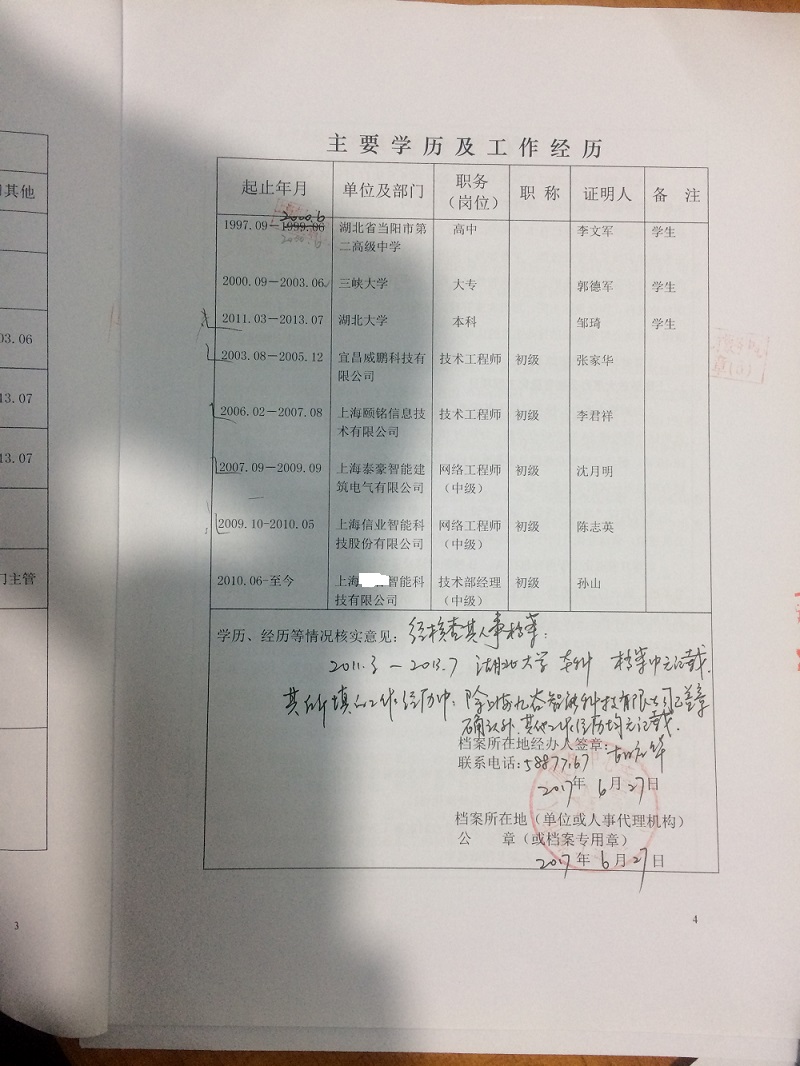 主要学历及工作经历
起止年月 单位及部门 职务（岗位） 职 称 证明人 备 注
2000.6
1997.09－1999.06 湖北省当阳市第二高级中学 高中 李文军 学生
2000.09－2003.06 三峡大学 大专 郭德军 学生
2011.03－2013.07 湖北大学 本科 邹琦 学生
2003.08－2005.12 宜昌威鹏科技有限公司 技术工程师 初级 张家华
2006.02－2007.08 上海颐铭信息技术有限公司 技术工程师 初级 李君祥
2007.09－2009.09 上海泰豪智能建筑电气有限公司 网络工程师（中级） 初级 沈月明
2009.10-2010.05 上海信业智能科技股份有限公司 网络工程师（中级） 初级 陈志英
2010.06-至今 上海 智能科技有限公司 技术部经理（中级） 初级 孙山
学历、经历等情况核实意见：经核查其人事档案：
2011.3－2013.7 湖北大学 本科 档案中无记载.
其所填的工作经历中，除上海 智能科技有限公司已盖章
确认外，其他工作经历均无记载.
档案所在地经办人签章：
联系电话：
2017年 6月27日
档案所在地（单位或人事代理机构）
公 章（或档案专用章）
2017年 6月27日
4
3
其他
03.06
13.07
13.07
门主管